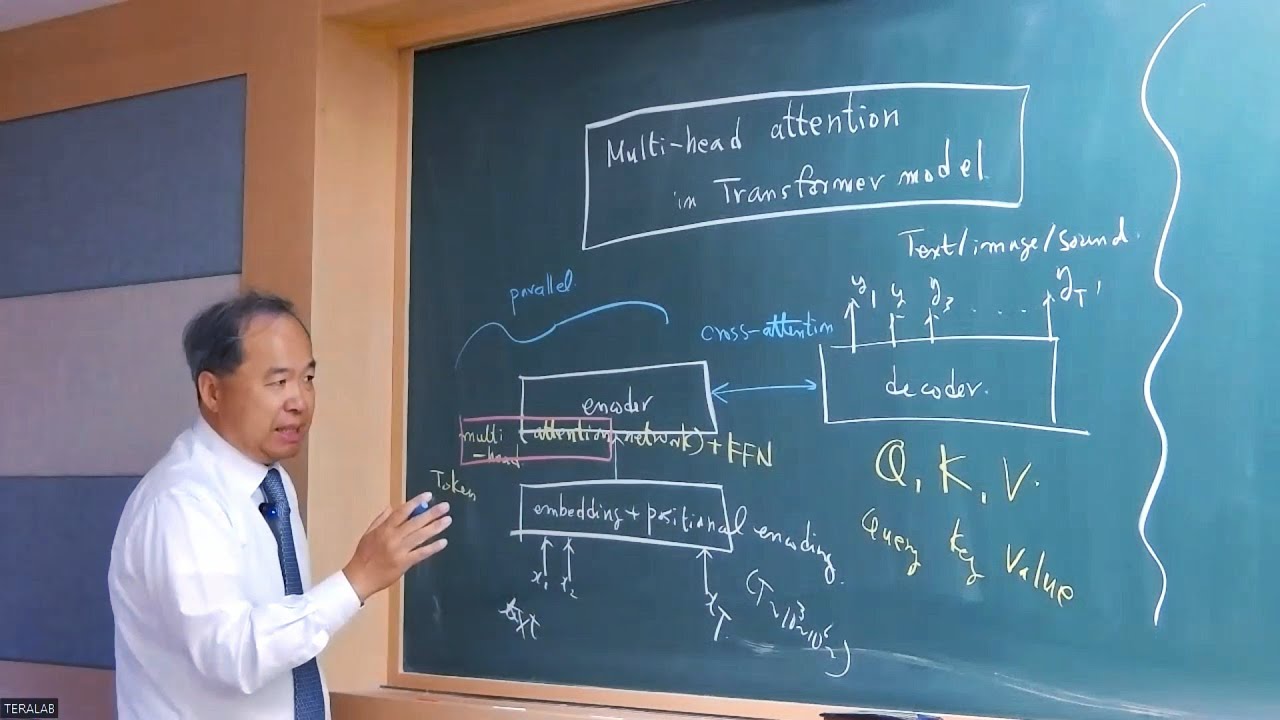 Multi-head attention
in Transformer model
Text/image/sound.
y1 y2 y3 . . . . yT'
parallel.
cross-attention
encoder
decoder.
multi
-head
(attention network) + FFN
Token
Q, K, V.
Query Key Value
embedding + positional encoding.
x1 x2 xT
(T ~ 10^3 ~ 10^6)
TERALAB